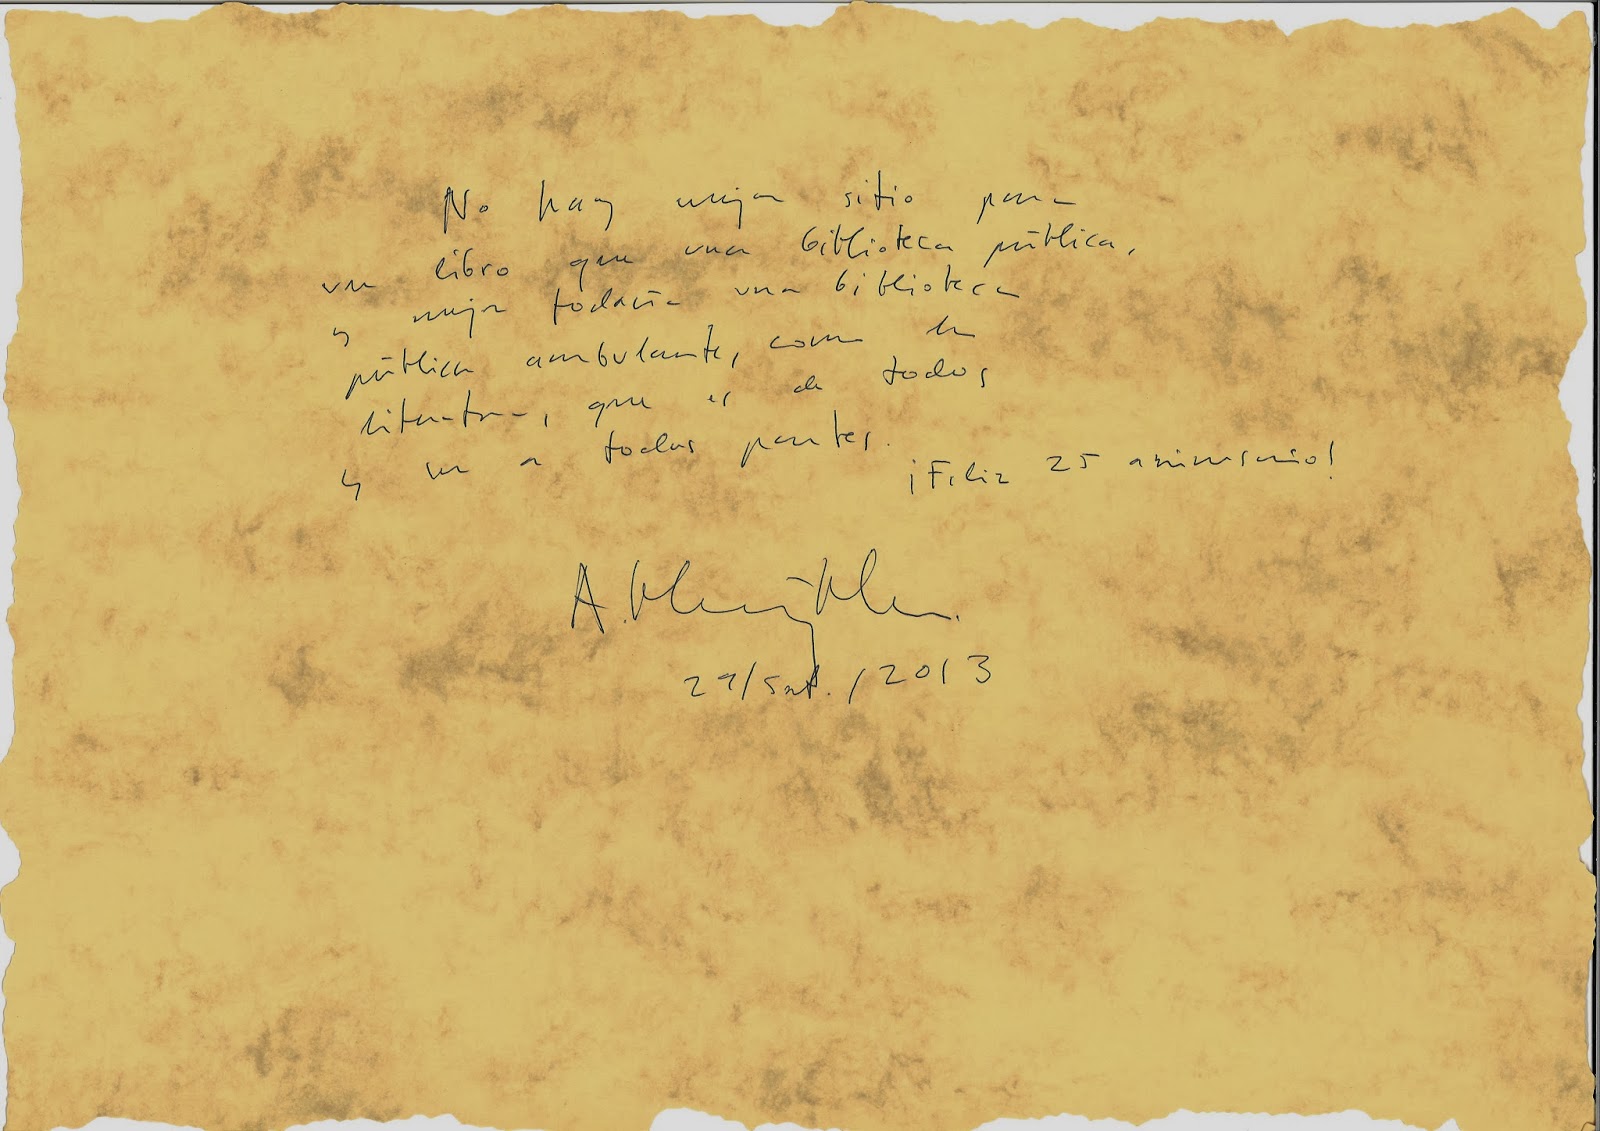 No hay mejor sitio para
un libro que una biblioteca pública,
y mejor todavía una biblioteca
pública ambulante, como la
literatura, que es de todos
y va a todas partes.
¡Feliz 25 aniversario!
A.
/Set. / 2013